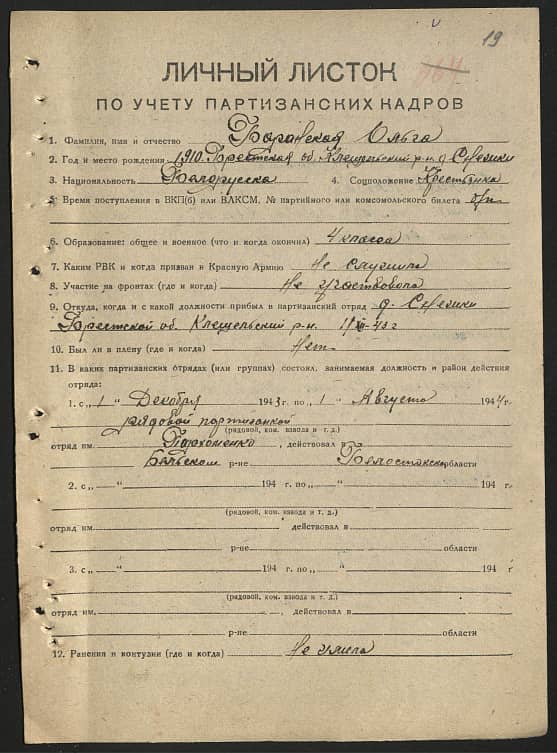 19
ЛИЧНЫЙ ЛИСТОК
ПО УЧЕТУ ПАРТИЗАНСКИХ КАДРОВ
1. Фамилия, имя и отчество Барановская Ольга
2. Год и место рождения 1910 Брестская об. Клещельский р-н д.
3. Национальность Белорусска 4. Соцположение Крестьянка
5. Время поступления в ВКП(б) или ВЛКСМ, № партийного или комсомольского билета б/п
6. Образование: общее и военное (что и когда окончил) 4 класса
7. Каким РВК и когда призван в Красную Армию Не служила
8. Участие на фронтах (где и когда) Не участвовала
9. Откуда, когда и с какой должности прибыл в партизанский отряд д.
Брестской об. Клещельский р-н. 1/XII-43 г
10. Был ли в плену (где и когда) Нет
11. В каких партизанских отрядах (или группах) состоял, занимаемая должность и район действия
отряда:
1. с „1“ Декабря 1943 г. по „1“ Августа 1944 г.
рядовой партизанкой
(рядовой, ком. взвода и т. д.)
отряд им. Пархоменко, действовал в
Бельском р-не Белостокской области
2. с „ “ 194 г. по „ “ 194 г.
(рядовой, ком. взвода и т. д.)
отряд им. действовал в
р-не области
3. с „ “ 194 г. по „ “ 194 г
(рядовой, ком. взвода и т. д.)
отряд им. , действовал в
р-не области
12. Ранения и контузии (где и когда) Не имела